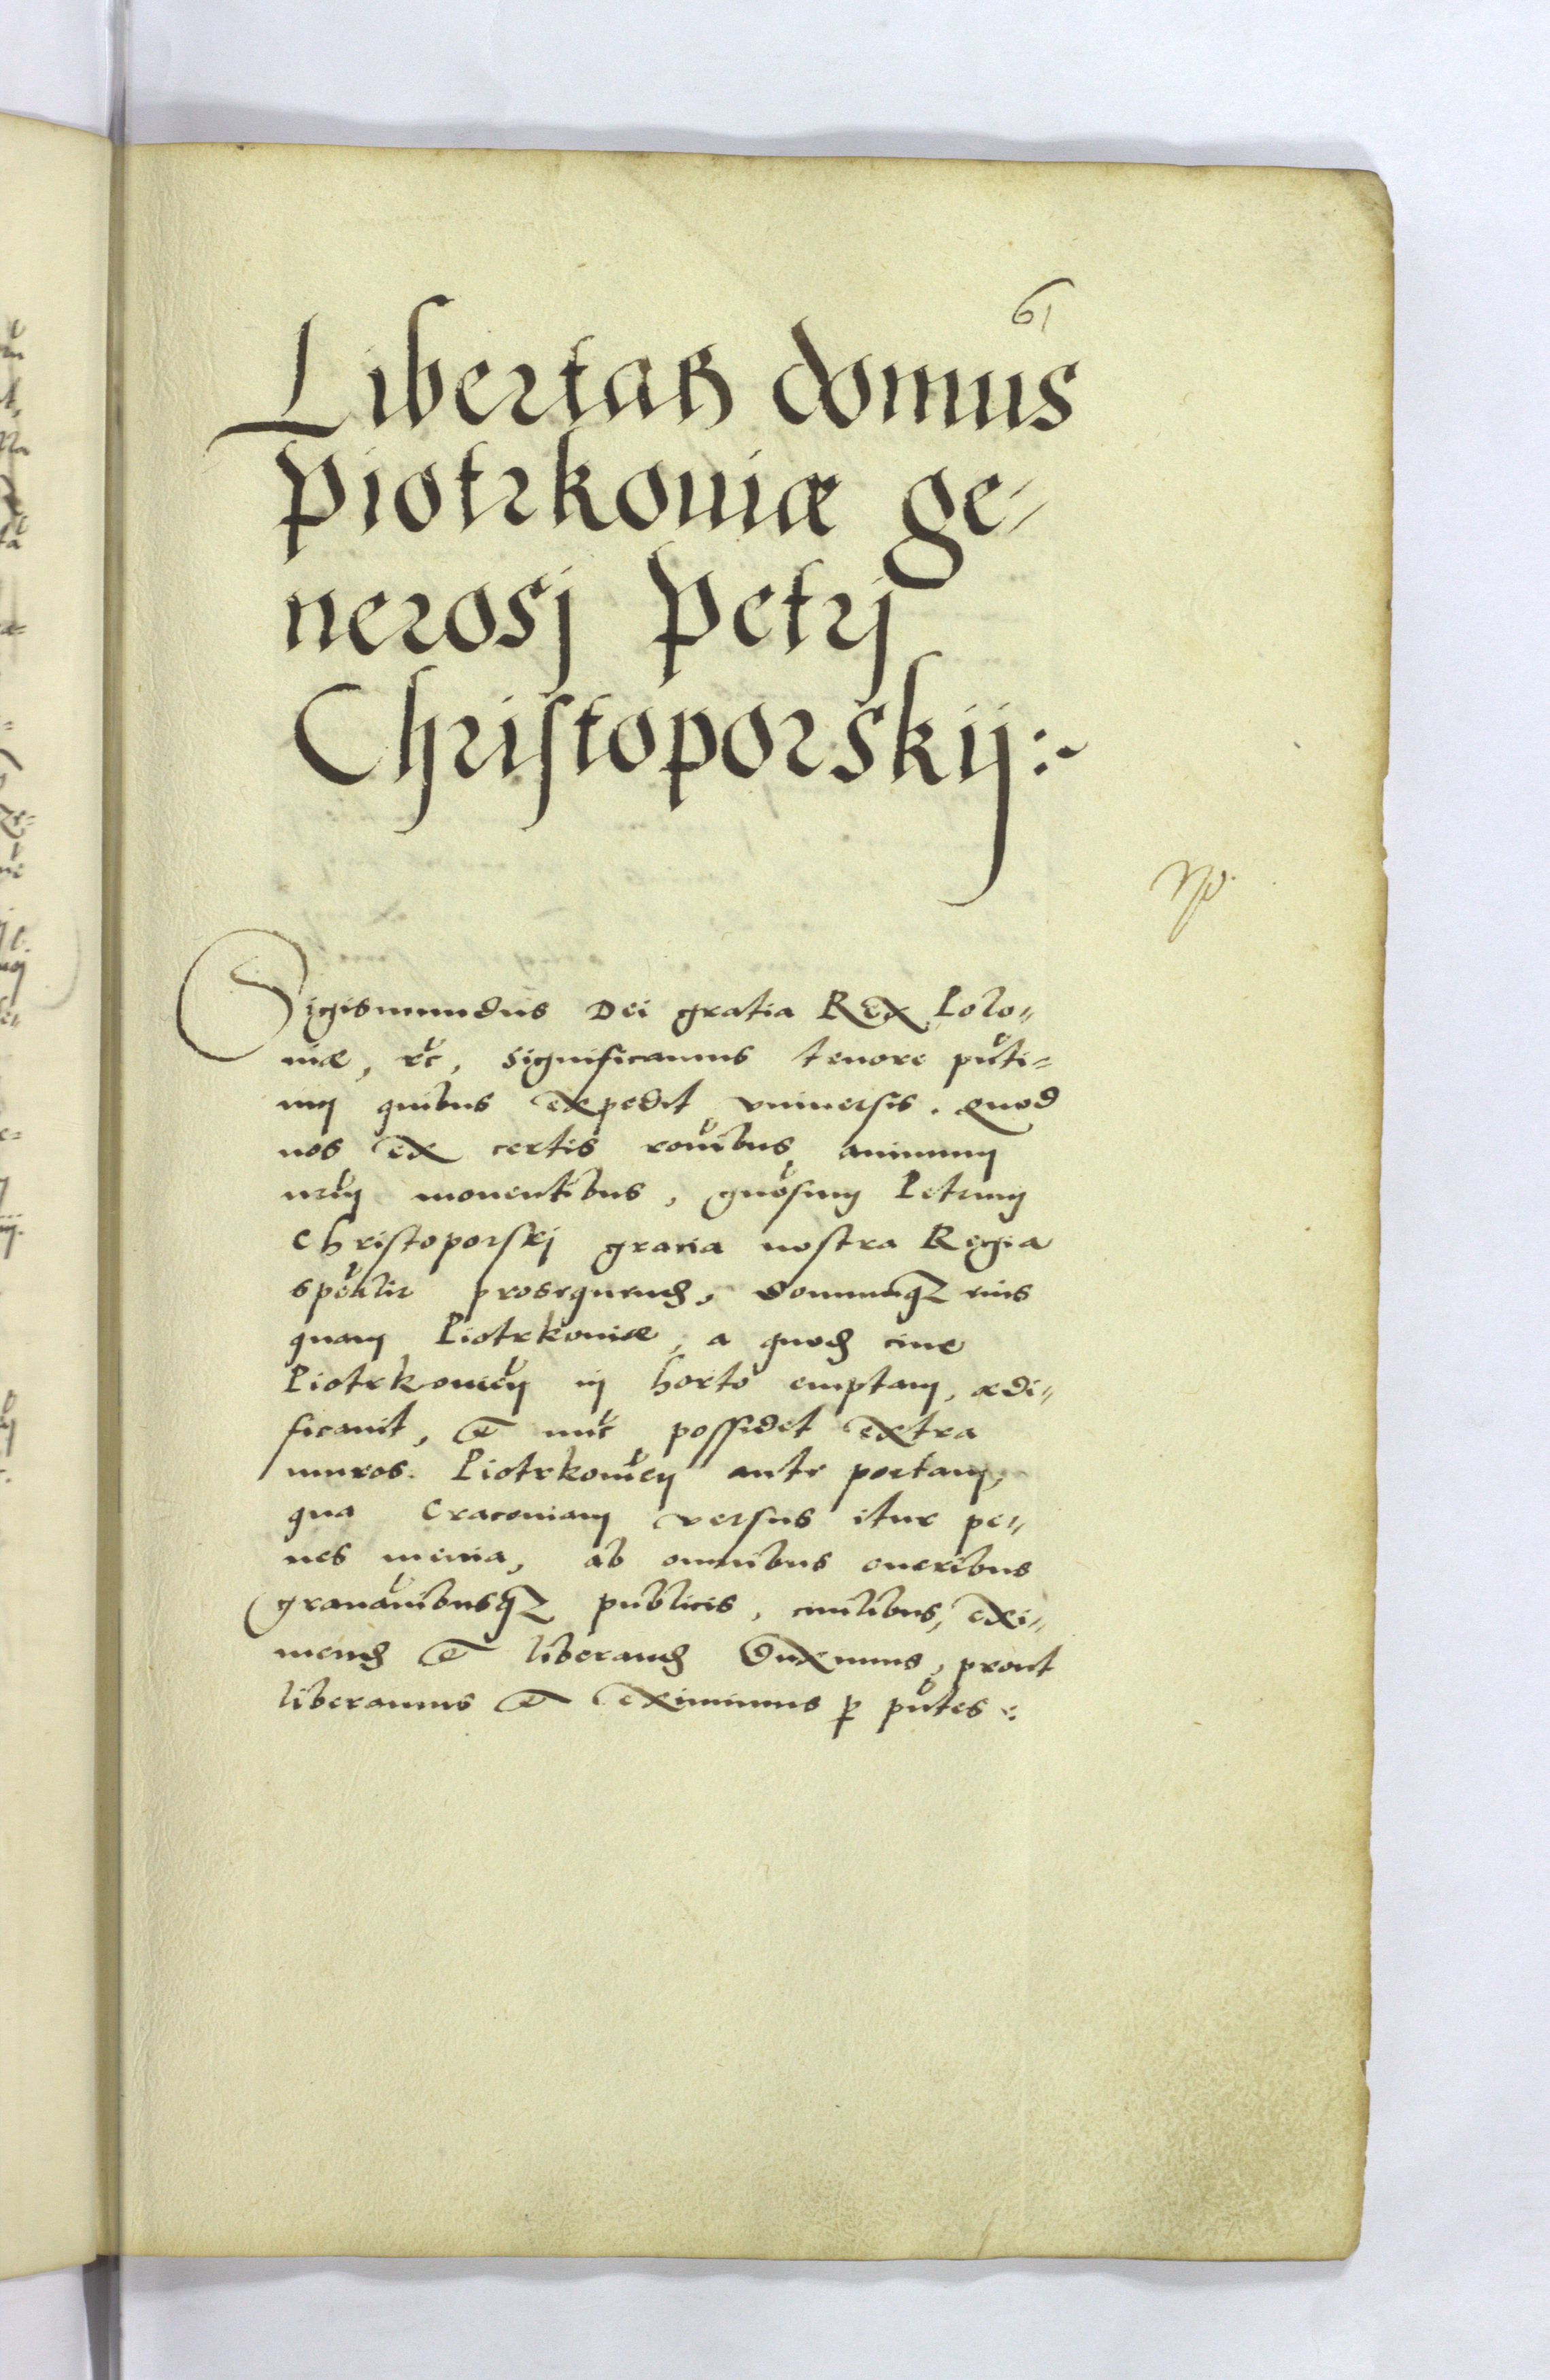 61
Libertas domus
Piotrkouiæ ge-
nerosj Petrj
Christoporskij:~
Sigismundus Dei gratia Rex Polo-
niæ, rc̃, significamus tenore pñti-
um quibus expedit vniuersis. Quod
nos ex certis rõnibus animum
nrũm mouentibus, gnõsum Petrum
Christoporskj gratia nostra Regia
spẽalir prosequend, domumqz eius
quam Piotrkouiæ, a quod ciue
Piotrkouieñ in horto emptam, ædi-
ficauit, et nũc possidet extra
muros Piotrkouieñ ante portam,
qua Cracouiam versus itur pe-
nes menia, ab omnibus oneribus
grauãnibusqz publicis, ciuilibus, exi-
mend et liberand duximus, prout
liberamus et eximimus p pñtes.